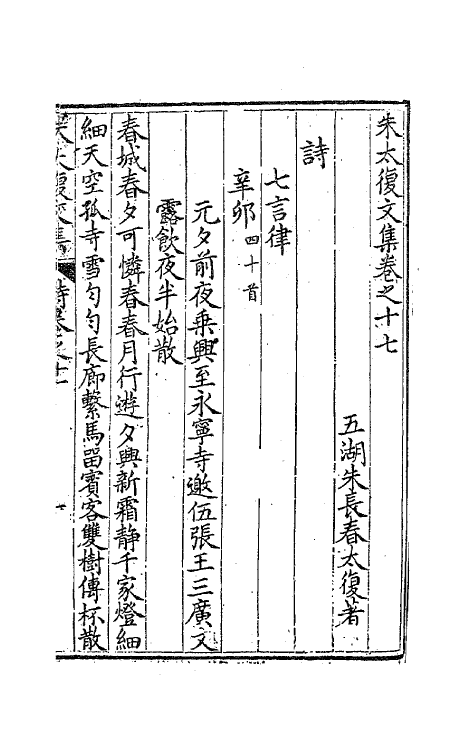 朱太復文集卷之十七
五湖朱長春太復著
詩
七言律
辛卯 四十首
元夕前夜乗興至永寧寺邀伍張王三廣文
露飲夜半始散
春城春夕可憐春春月行遊夕興新霜静千家燈細
細天空孤寺雪勻勻長廊繫馬畱賓客雙樹傳杯散